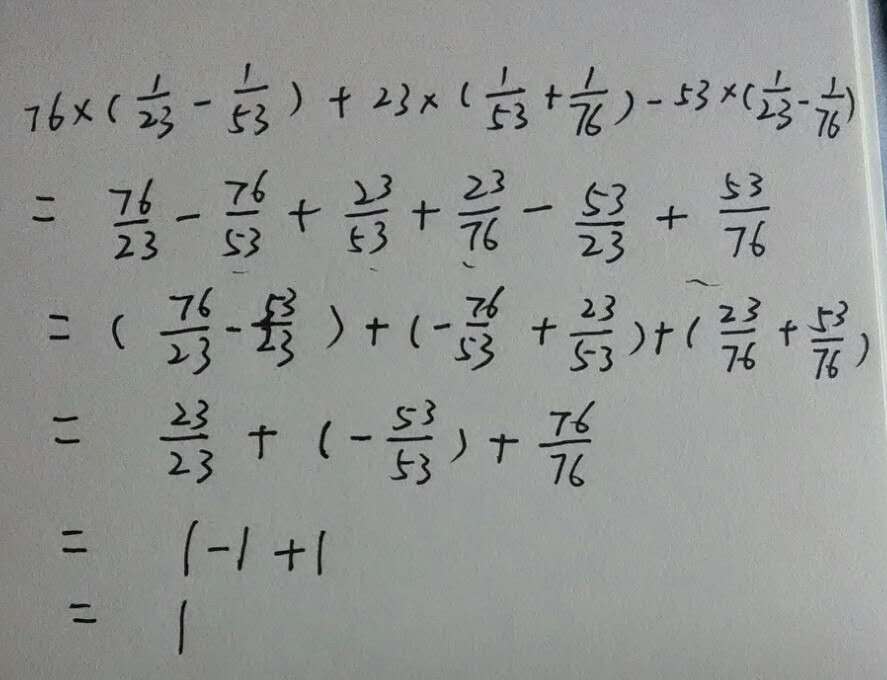 76×(1/23 - 1/53) + 23×(1/53 + 1/76) - 53×(1/23 - 1/76)
= 76/23 - 76/53 + 23/53 + 23/76 - 53/23 + 53/76
= (76/23 - 53/23) + (-76/53 + 23/53) + (23/76 + 53/76)
= 23/23 + (-53/53) + 76/76
= 1 - 1 + 1
= 1